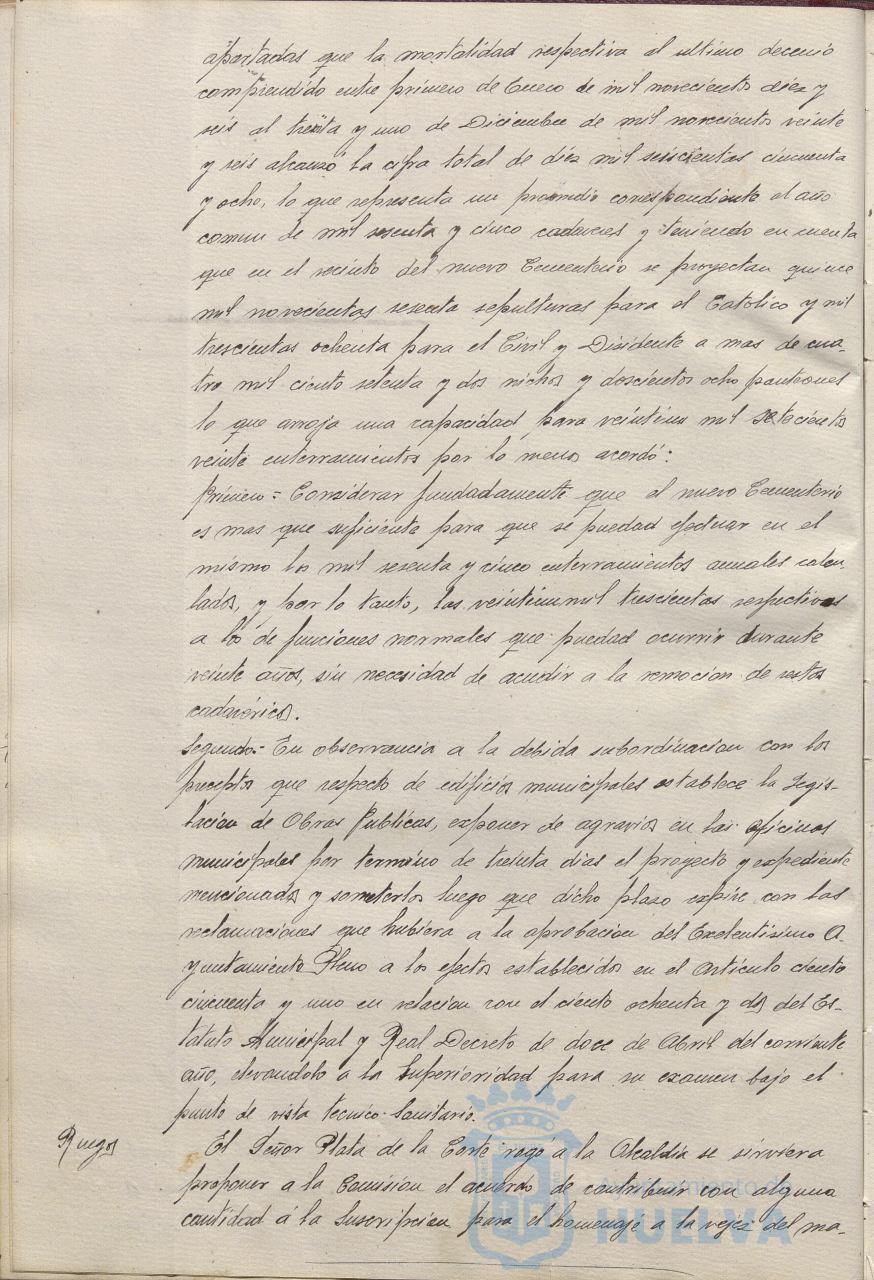 apartadas que la mortalidad respectiva al ultimo decenio
comprendido entre primero de Enero de mil novecientos diez y
seis al treinta y uno de Diciembre de mil novecientos veinte
y seis alcanzó la cifra total de diez mil seiscientas cincuenta
y ocho, lo que representa un promedio correspondiente al año
comun de mil sesenta y cinco cadaveres y teniendo en cuenta
que en el recinto del nuevo Cementerio se proyectan quince
mil novecientas sesenta sepulturas para el Catolico y mil
trescientas ochenta para el Civil y Disidente a mas de cua-
tro mil ciento setenta y dos nichos y doscientos ocho panteones
lo que arroja una capacidad para veintiun mil setecientos
veinte enterramientos por lo menos acordó:
Primero = Considerar fundadamente que el nuevo Cementerio
es mas que suficiente para que se puedad efectuar en el
mismo los mil sesenta y cinco enterramientos anuales calcu-
lados, y por lo tanto, los veintiun mil trescientos respectivos
a los de funciones normales que puedad ocurrir durante
veinte años, sin necesidad de acudir a la remocion de restos
cadavéricos.
Segundo = En observancia a la debida subordinacion con los
preceptos que respecto de edificios municipales establece la Legis-
lacion de Obras Publicas, exponer de agravios en las oficinas
municipales por termino de treinta dias el proyecto y expediente
mencionados y someterlos luego que dicho plazo expire con las
reclamaciones que hubiera a la aprobacion del Exelentisimo A-
yuntamiento Pleno a los efectos establecidos en el Articulo ciento
cincuenta y uno en relacion con el ciento ochenta y dos del Es-
tatuto Municipal y Real Decreto de doce de Abril del corriente
año, elevandolo a la Superioridad para su examen bajo el
punto de vista tecnico-Sanitario.
Ruegos
El Señor Plata de la Corte rogó a la Alcaldia se sirviera
proponer a la Comision el acuerdo de contribuir con alguna
cantidad á la Suscripcion para el homenaje a la vejez del ma-
Ayuntamiento de
HUELVA